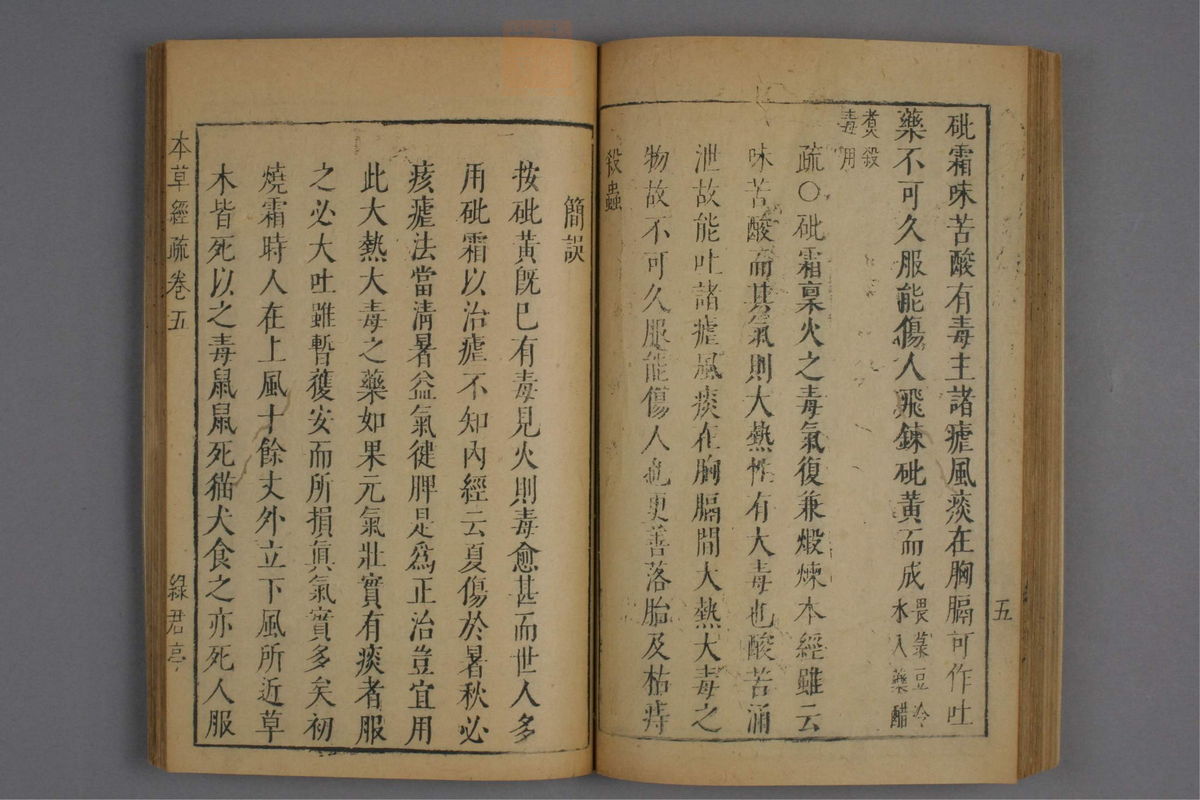 砒霜味苦酸有毒主諸瘧風痰在胸膈可作吐
藥不可久服能傷人飛鍊砒黃而成畏菉豆冷
水入藥醋
煑殺
毒用
疏○砒霜稟火之毒氣復兼煅煉本經雖云
味苦酸而其氣則大熱性有大毒也酸苦涌
泄故能吐諸瘧風痰在胸膈間大熱大毒之
物故不可久服能傷人也更善落胎及枯痔
殺蟲
五
簡誤
按砒黃旣已有毒見火則毒愈甚而世人多
用砒霜以治瘧不知內經云夏傷於暑秋必
痎瘧法當淸暑益氣健脾是爲正治豈宜用
此大熱大毒之藥如果元氣壯實有痰者服
之必大吐雖暫獲安而所損眞氣實多矣初
燒霜時人在上風十餘丈外立下風所近草
木皆死以之毒鼠鼠死猫犬食之亦死人服
本草經疏卷五
綠君亭